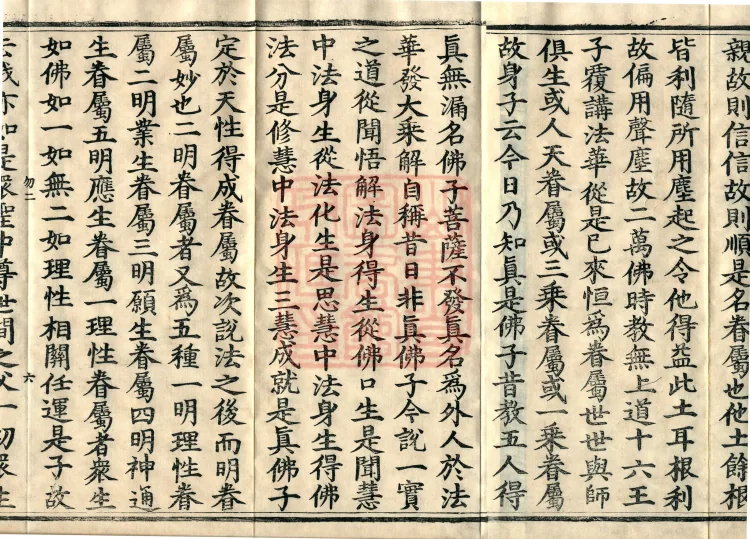 親故則信信故則順是名眷屬也他土餘根
皆利隨所用塵起之令他得益此土耳根利
故偏用聲塵故二萬佛時教無上道十六王
子覆講法華從是已來恒為眷屬世世與師
俱生或人天眷屬或三乘眷屬或一乘眷屬
故身子云今日乃知真是佛子昔教五人得
真無漏名佛子菩薩不發真名為外人於法
華發大乘解自稱昔日非真佛子今說一實
之道從聞悟解法身得生從佛口生是聞慧
中法身生從法化生是思慧中法身生得佛
法分是修慧中法身生三慧成就是真佛子
定於天性得成眷屬故次說法之後而明眷
屬妙也二明眷屬者又為五種一明理性眷
屬二明業生眷屬三明願生眷屬四明神通
生眷屬五明應生眷屬一理性眷屬者眾生
如佛如一如無二如理性相關任運是子故
勿二
六
云我亦如是眾聖中尊世間之父一切眾生